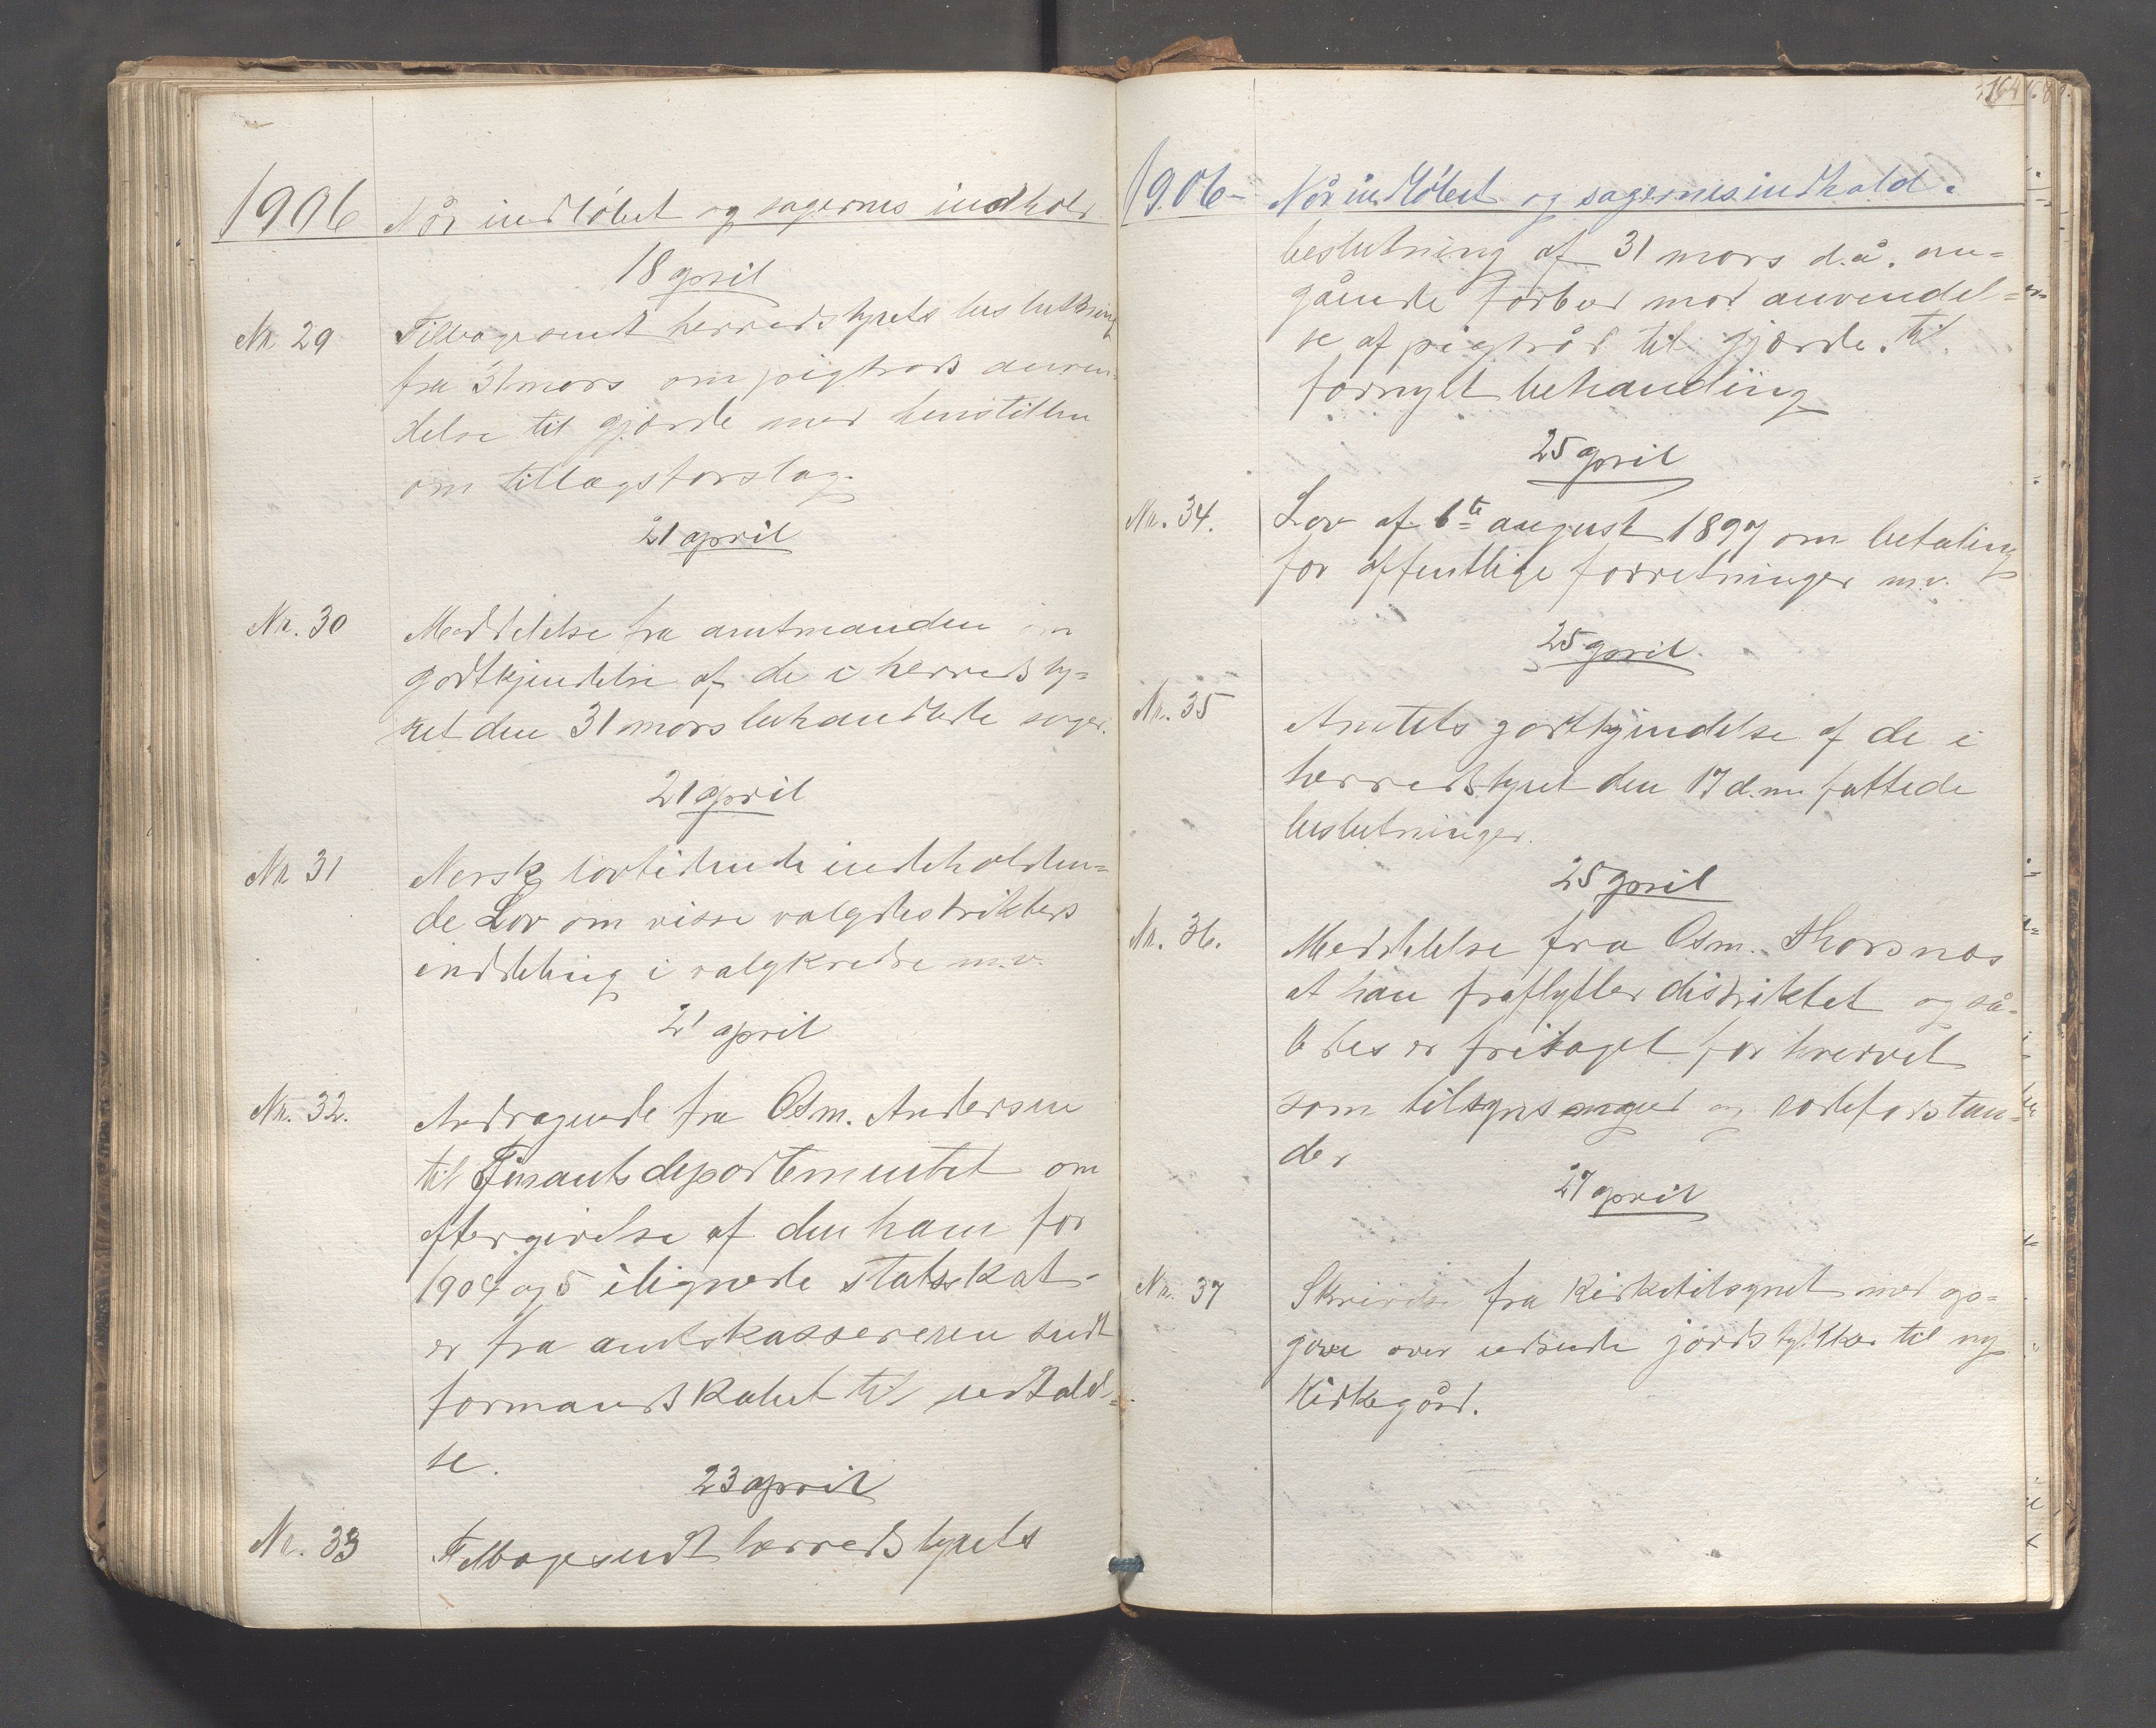 1906 Når indløbet og sagernes indhold
18 april
Nr. 29 Tilbagesendt herredstyrets beslutning
fra 31 mars om pigtrods anven-
delse til gjærde med henstillen
om tillægsforslag.
21 april
Nr. 30 Meddelelse fra amtmanden om
godtkjendelse af de i herredsty-
ret den 31 mars behandlede sager.
21 april
Nr. 31 Norsk lovtidende indeholden=
de Lov om visse valgdistrikters
inddeling i valgkredse m.v.
21 april
Nr. 32. Andragende fra Osm. Andersen
til Finantsdepartementet om
eftergivelse af den ham for
1904 og 5 ilignede statsskat-
er fra amtskassereren sendt
formandskabet til udtalel=
se.
23 april
Nr. 33 Tilbagesendt herredstyrets
164
1906- Når indløbet og sagernes indhold.
beslutning af 31 mars d.å. an=
gående forbud mod anvendel=
se af pigtråd til gjærde. til
fornyet behandling
25 april
Nr. 34. Lov af 6te august 1897 om betaling
for offentlige forretninger m.v.
25 april.
Nr. 35 Amtets godtkjendelse af de i
herredstyret den 17 d.m. fattede
beslutninger.
25 april
Nr. 36. Meddelelse fra Osm. Thorsnæs
at han fraflytter distriktet og så-
ledes er fritaget for hvervet
som tilsynsmand og rodeforstan=
der
27 april
Nr. 37 Skrivelse fra Kirketilsynet med op=
gave over udsende jordstykker til ny
Kirkegård.